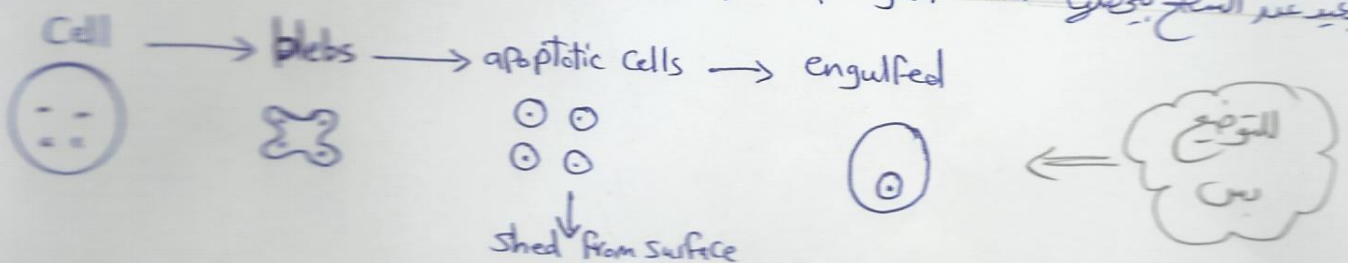 Cell → blebs → apoptotic cells → engulfed
shed from surface
للتوضيح
بس